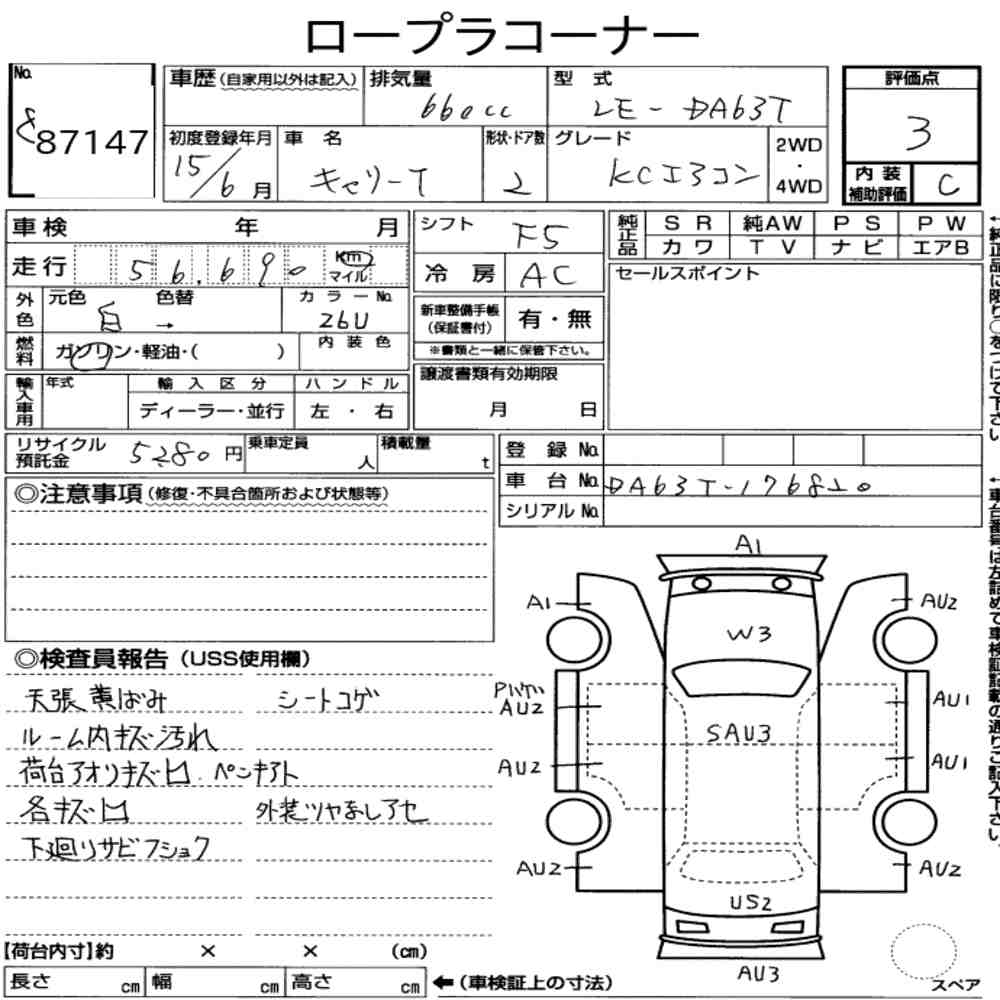 ロープラコーナー
No.
887147
車歴(自家用以外は記入) 排気量 660cc 型式 LE-DA63T
初度登録年月 15/6月 車名 キャリーT 形状・ドア数 2 グレード KCエアコン 2WD・4WD
評価点 3
内装補助評価 C
車検 年 月
走行 56,690 km マイル
外色 元色 白 色替 → カラーNo. 26U
燃料 ガソリン・軽油・( ) 内装色
輸入車用 年式 輸入区分 ディーラー・並行 ハンドル 左・右
シフト F5
冷房 AC
新車整備手帳(保証書付) 有・無
※書類と一緒に保管下さい。
譲渡書類有効期限
月 日
純正品 SR 純AW PS PW
カワ TV ナビ エアB
セールスポイント
←純正品に限り○をつけて下さい
リサイクル預託金 5280円 乗車定員 人 積載量 t
登録No.
車台No. DA63T-176820
シリアルNo.
←車台番号は左詰めで車検証記載の通りご記入下さい。
◎注意事項(修復・不具合箇所および状態等)
◎検査員報告(USS使用欄)
天張黄ばみ シートコゲ
ルーム内キズ汚れ
荷台アオリキズ凹 ペンキアト
各キズ凹 外装ツヤなし アセ
下廻りサビフショク
【荷台内寸】約 × × (cm)
長さ cm 幅 cm 高さ cm ←(車検証上の寸法)
A1
A1 AU2
W3
AU2 AU1
SAU3
AU2 AU1
AU2 AU2
US2
AU3
スペア